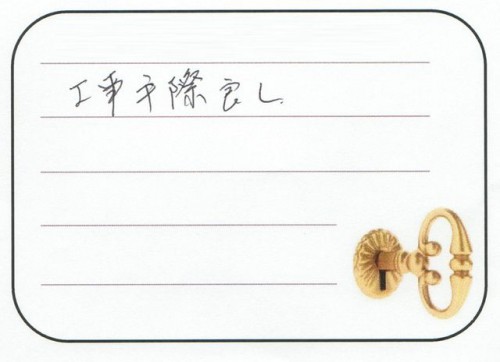 工事手際良し